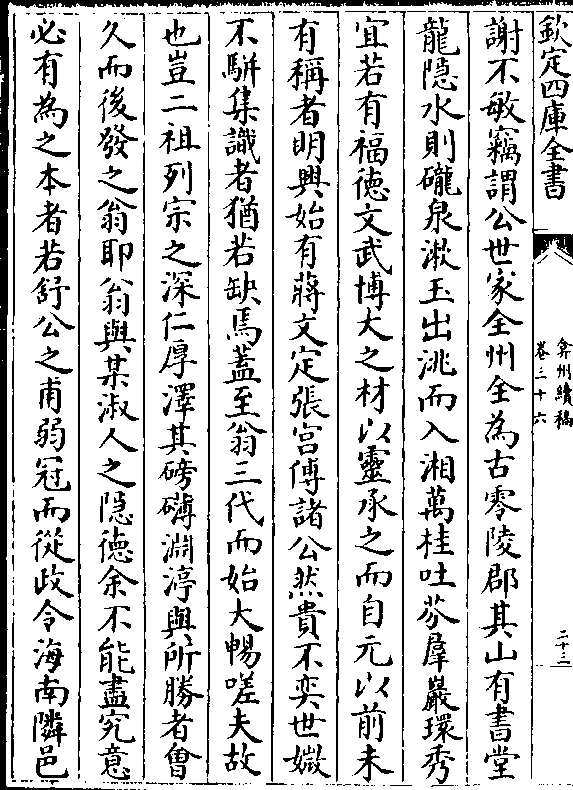 欽定四庫全書
弇州續稿
卷三十六
二十三
謝不敏竊謂公世家全州全為古零陵郡其山有書堂
龍隠水則礲泉漱玉出洮而入湘萬桂吐芬羣巖環秀
宜若有福徳文武博大之材以靈承之而自元以前未
有稱者明興始有蔣文定張宫傅諸公然貴不奕世媺
不駢集識者猶若缺焉蓋至翁三代而始大暢嗟夫故
也豈二祖列宗之深仁厚澤其磅礴淵渟與所勝者㑹
久而後發之翁耶翁與某淑人之隠徳余不能盡究意
必有為之本者若舒公之甫弱冠而從政令海南隣邑